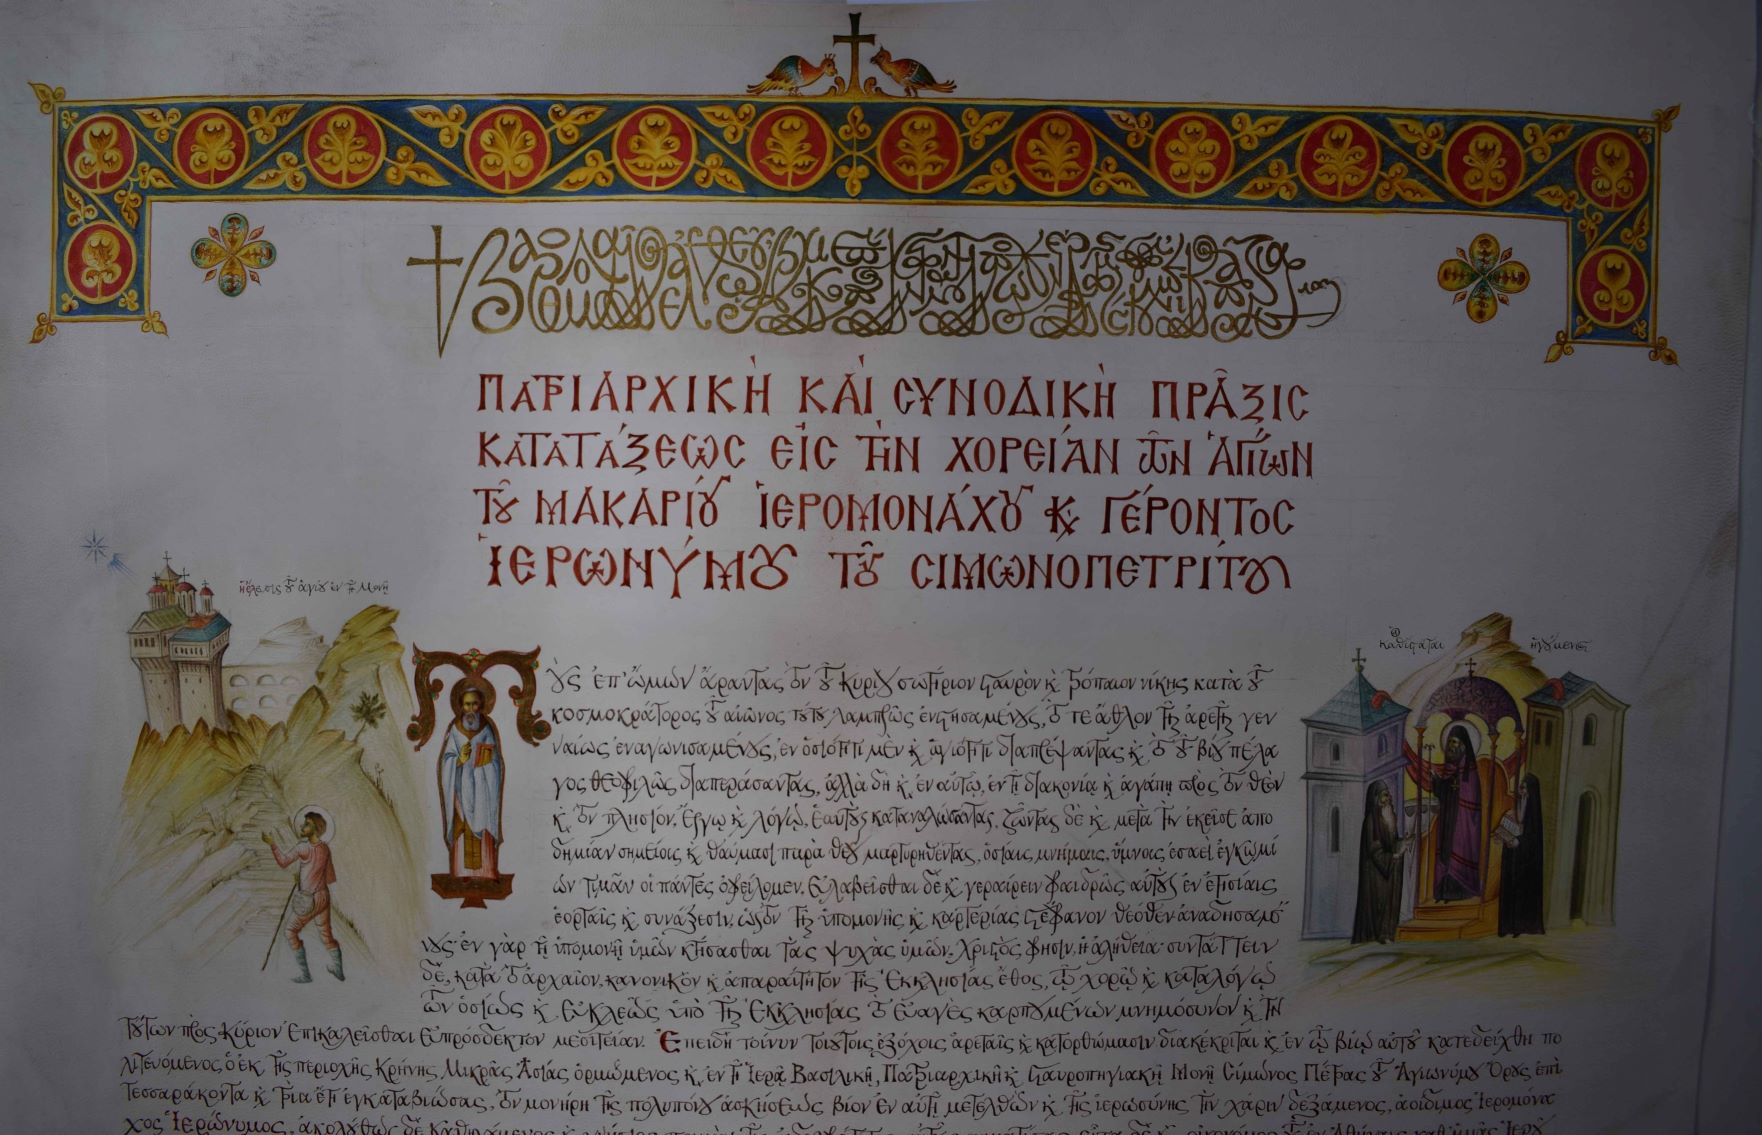 ΠΑΤΡΙΑΡΧΙΚῊ ΚΑῚ ΣΥΝΟΔΙΚῊ ΠΡΑ͂ΞΙΣ
ΚΑΤΑΤΆΞΕΩΣ ΕἸΣ ΤῊΝ ΧΟΡΕΊΑΝ ΤΩ͂Ν ἉΓΊΩΝ
ΤΟΥ͂ ΜΑΚΑΡΊΟΥ ἹΕΡΟΜΟΝΆΧΟΥ Κ̀ ΓΈΡΟΝΤΟΣ
ἹΕΡΩΝΎΜΟΥ ΤΟΥ͂ ΣΙΜΩΝΟΠΕΤΡΊΤΟΥ
ἡ ἔλευσις τοῦ ἁγίου ἐν τῇ Μονῇ
καθίσταται ἡγούμενος
Τοὺς ἐπ' ὤμων ἄραντας τὸν τοῦ Κυρίου σωτήριον σταυρὸν κ̀ τρόπαιον νίκης κατὰ τοῦ
κοσμοκράτορος τοῦ αἰῶνος τούτου λαμπρῶς ἐνστησαμένους, τό τε ἆθλον τῆς ἀρετῆς γεν
ναίως ἐναγωνισαμένους, ἐν ὁσιότητι μὲν κ̀ ἁγιότητι διαπρέψαντας κ̀ τὸ τοῦ βίου πέλα
γος θεοφιλῶς διαπεράσαντας, ἀλλὰ δὴ κ̀ ἐν αὐτῷ, ἐν τῇ διακονίᾳ κ̀ ἀγάπῃ πρὸς τὸν Θεὸν
κ̀ τὸν πλησίον, ἔργῳ κ̀ λόγῳ, ἑαυτοὺς καταναλώσαντας, ζῶντας δὲ κ̀ μετὰ τὴν ἐκεῖσε ἀπο
δημίαν σημείοις κ̀ θαύμασι παρὰ Θεοῦ μαρτυρηθέντας, ὁσίαις μνήμαις, ὕμνοις ἐσαεὶ ἐγκωμί
ων τιμᾶν οἱ πάντες ὀφείλομεν, εὐλαβεῖσθαι δὲ κ̀ γεραίρειν φαιδρῶς αὐτοὺς ἐν ἐτησίαις
ἑορταῖς κ̀ συνάξεσιν, ὡς τὸν τῆς ὑπομονῆς κ̀ καρτερίας στέφανον θεόθεν ἀναδησαμέ
νους· ἐν γὰρ τῇ ὑπομονῇ ὑμῶν κτήσασθαι τὰς ψυχὰς ὑμῶν, Χριστὸς φησίν, ἡ ἀλήθεια· συντάττειν
δέ, κατὰ τὸ ἀρχαῖον, κανονικὸν κ̀ ἀπαραίτητον τῆς Ἐκκλησίας ἔθος, τῷ χορῷ κ̀ καταλόγῳ
τῶν ὁσίως κ̀ εὐκλεῶς ὑπὸ τῆς Ἐκκλησίας τὸ εὐαγὲς καρπουμένων μνημόσυνον κ̀ τὴν
τούτων πρὸς Κύριον ἐπικαλεῖσθαι εὐπρόσδεκτον μεσιτείαν. Ἐπειδὴ τοίνυν τοιούτοις ἐξόχοις ἀρεταῖς κ̀ κατορθώμασιν διακέκριται κ̀ ἐν τῷ βίῳ αὐτοῦ κατεδείχθη πο
λιτευόμενος ὁ ἐκ τῆς περιοχῆς Κρήνης Μικρᾶς Ἀσίας ὁρμώμενος κ̀ ἐν τῇ Ἱερᾷ Βασιλικῇ, Πατριαρχικῇ κ̀ Σταυροπηγιακῇ Μονῇ Σίμωνος Πέτρας τοῦ Ἁγιωνύμου Ὄρους ἐπὶ
τεσσαράκοντα κ̀ τρία ἔτη ἐγκαταβιώσας, τὸν μονήρη τῆς πολυπόνου ἀσκήσεως βίον ἐν αὐτῇ μετελθὼν κ̀ τῆς ἱερωσύνης τὴν χάριν δεξάμενος, ἀοίδιμος Ἱερομόνα
χος Ἱερώνυμος, ἀκολούθως δὲ